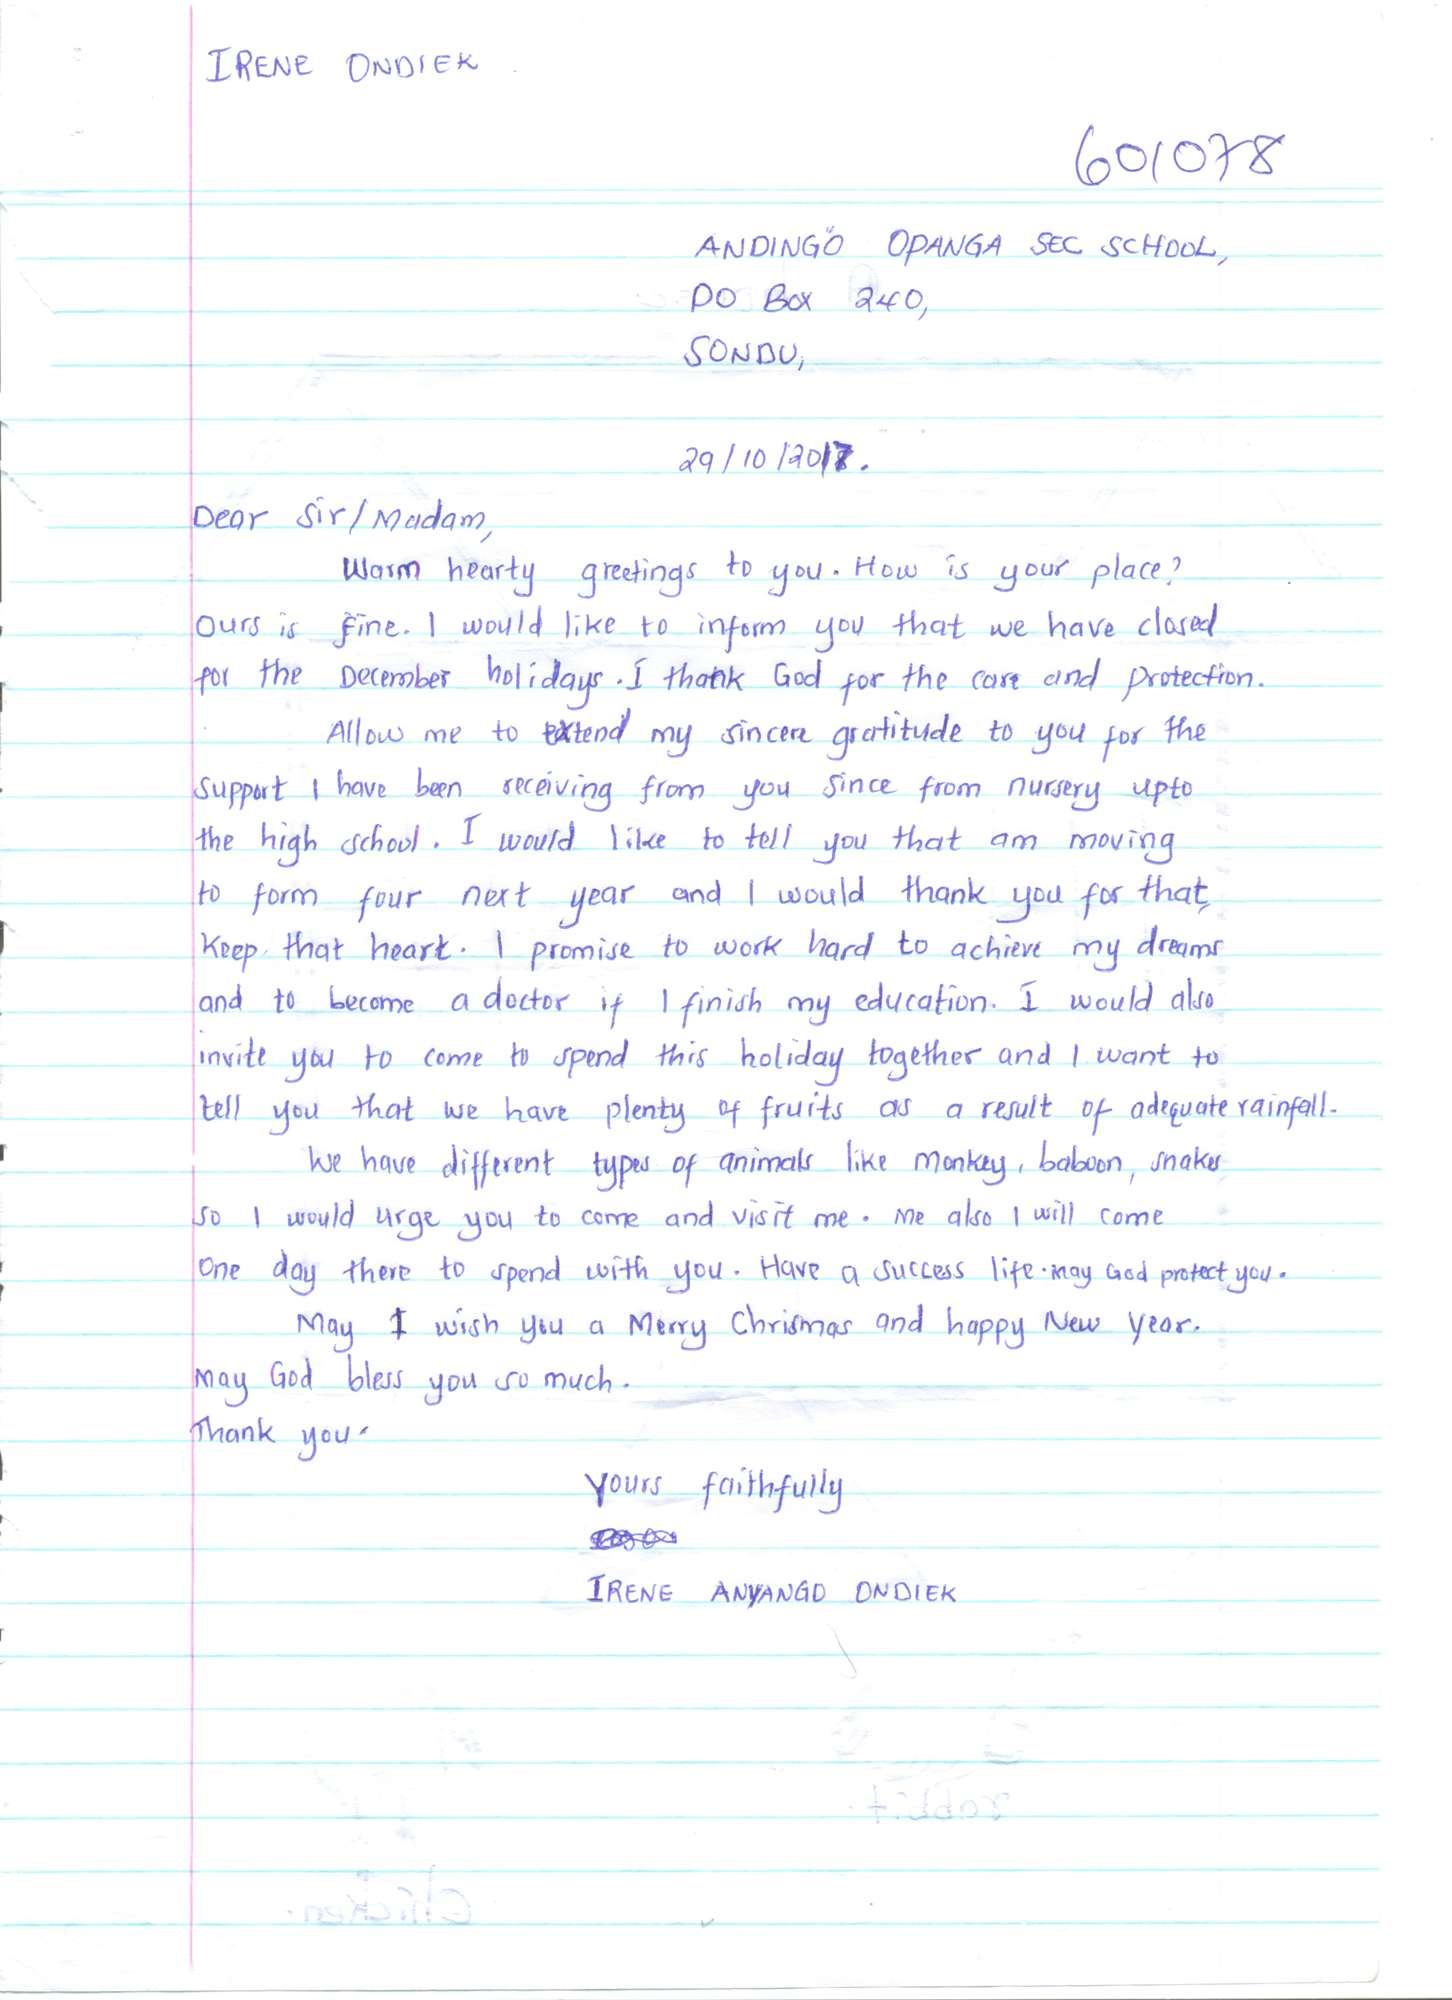 IRENE ONDIEK
601078
ANDINGÖ OPANGA SEC SCHOOL,
PO Box 240,
SONDU,
29/10/2017.
Dear Sir/Madam,
Warm hearty greetings to you. How is your place?
Ours is fine. I would like to inform you that we have closed
for the December holidays. I thank God for the care and protection.
Allow me to extend my sincere gratitude to you for the
support I have been receiving from you since from nursery upto
the high school. I would like to tell you that am moving
to form four next year and I would thank you for that,
keep that heart. I promise to work hard to achieve my dreams
and to become a doctor if I finish my education. I would also
invite you to come to spend this holiday together and I want to
tell you that we have plenty of fruits as a result of adequate rainfall.
We have different types of animals like monkey, baboon, snakes
so I would urge you to come and visit me. Me also I will come
one day there to spend with you. Have a success life. May God protect you.
May I wish you a Merry Chrismas and happy New Year.
May God bless you so much.
Thank you.
Yours faithfully
IRENE ANYANGO ONDIEK
rabbit.
Chicken.